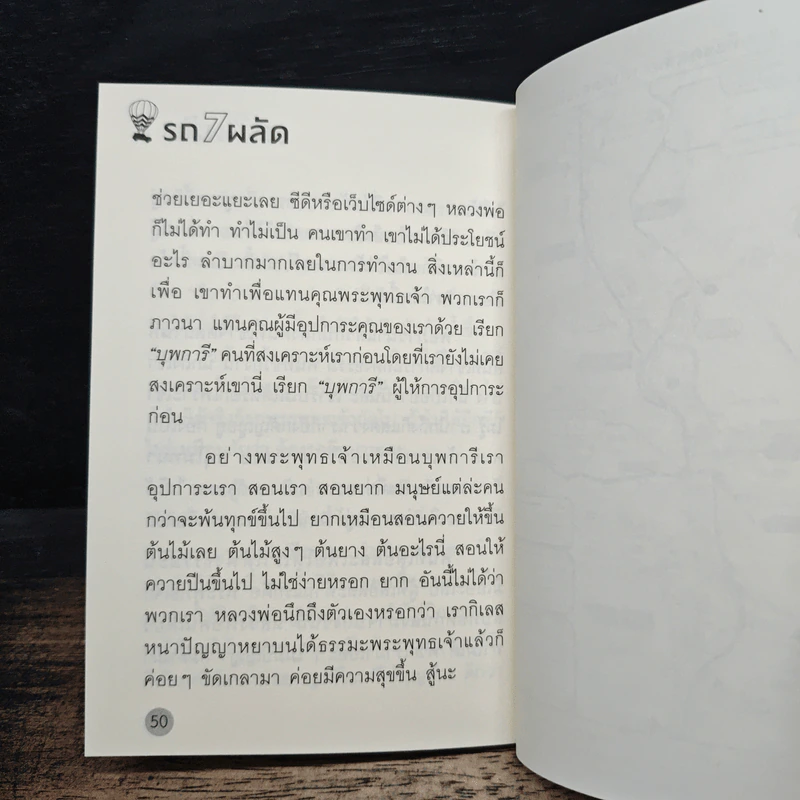 รถ 7 ผลัด
ช่วยเยอะแยะเลย ซีดีหรือเว็บไซด์ต่างๆ หลวงพ่อ
ก็ไม่ได้ทำ ทำไม่เป็น คนเขาทำ เขาไม่ได้ประโยชน์
อะไร ลำบากมากเลยในการทำงาน สิ่งเหล่านี้ก็
เพื่อ เขาทำเพื่อแทนคุณพระพุทธเจ้า พวกเราก็
ภาวนา แทนคุณผู้มีอุปการะคุณของเราด้วย เรียก
“บุพการี” คนที่สงเคราะห์เราก่อนโดยที่เรายังไม่เคย
สงเคราะห์เขานี่ เรียก “บุพการี” ผู้ให้การอุปการะ
ก่อน
อย่างพระพุทธเจ้าเหมือนบุพการีเรา
อุปการะเรา สอนเรา สอนยาก มนุษย์แต่ล่ะคน
กว่าจะพ้นทุกข์ขึ้นไป ยากเหมือนสอนควายให้ขึ้น
ต้นไม้เลย ต้นไม้สูงๆ ต้นยาง ต้นอะไรนี่ สอนให้
ควายปีนขึ้นไป ไม่ใช่ง่ายหรอก ยาก อันนี้ไม่ได้ว่า
พวกเรา หลวงพ่อนึกถึงตัวเองหรอกว่า เรากิเลส
หนาปัญญาหยาบนได้ธรรมะพระพุทธเจ้าแล้วก็
ค่อยๆ ขัดเกลามา ค่อยมีความสุขขึ้น สู้นะ
50